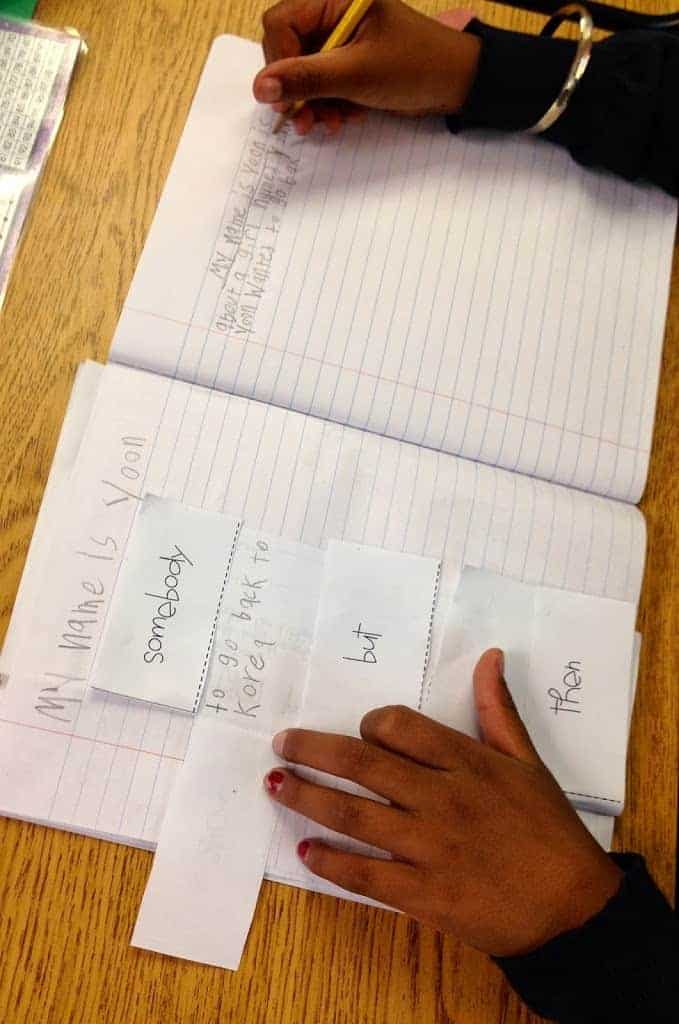 My name Is Yoon
somebody
to go back to
Korea
but
then
My name is Yoon is
about a girl named Yoon
Yoon wanted to go back